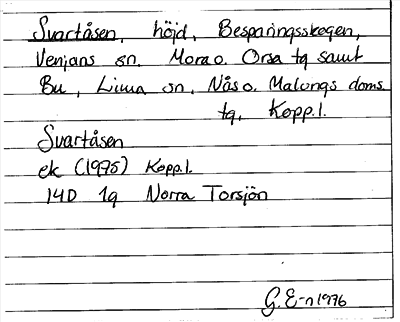 Svartåsen, höjd, Besparingsskogen,
Venjans sn, Mora o. Orsa tg samt
Bu, Lima sn, Nås o. Malungs doms.
tg, Kopp.l.
Svartåsen
ek (1975) Kopp.l.
14D 1g Norra Torsjön
G.E-n 1976